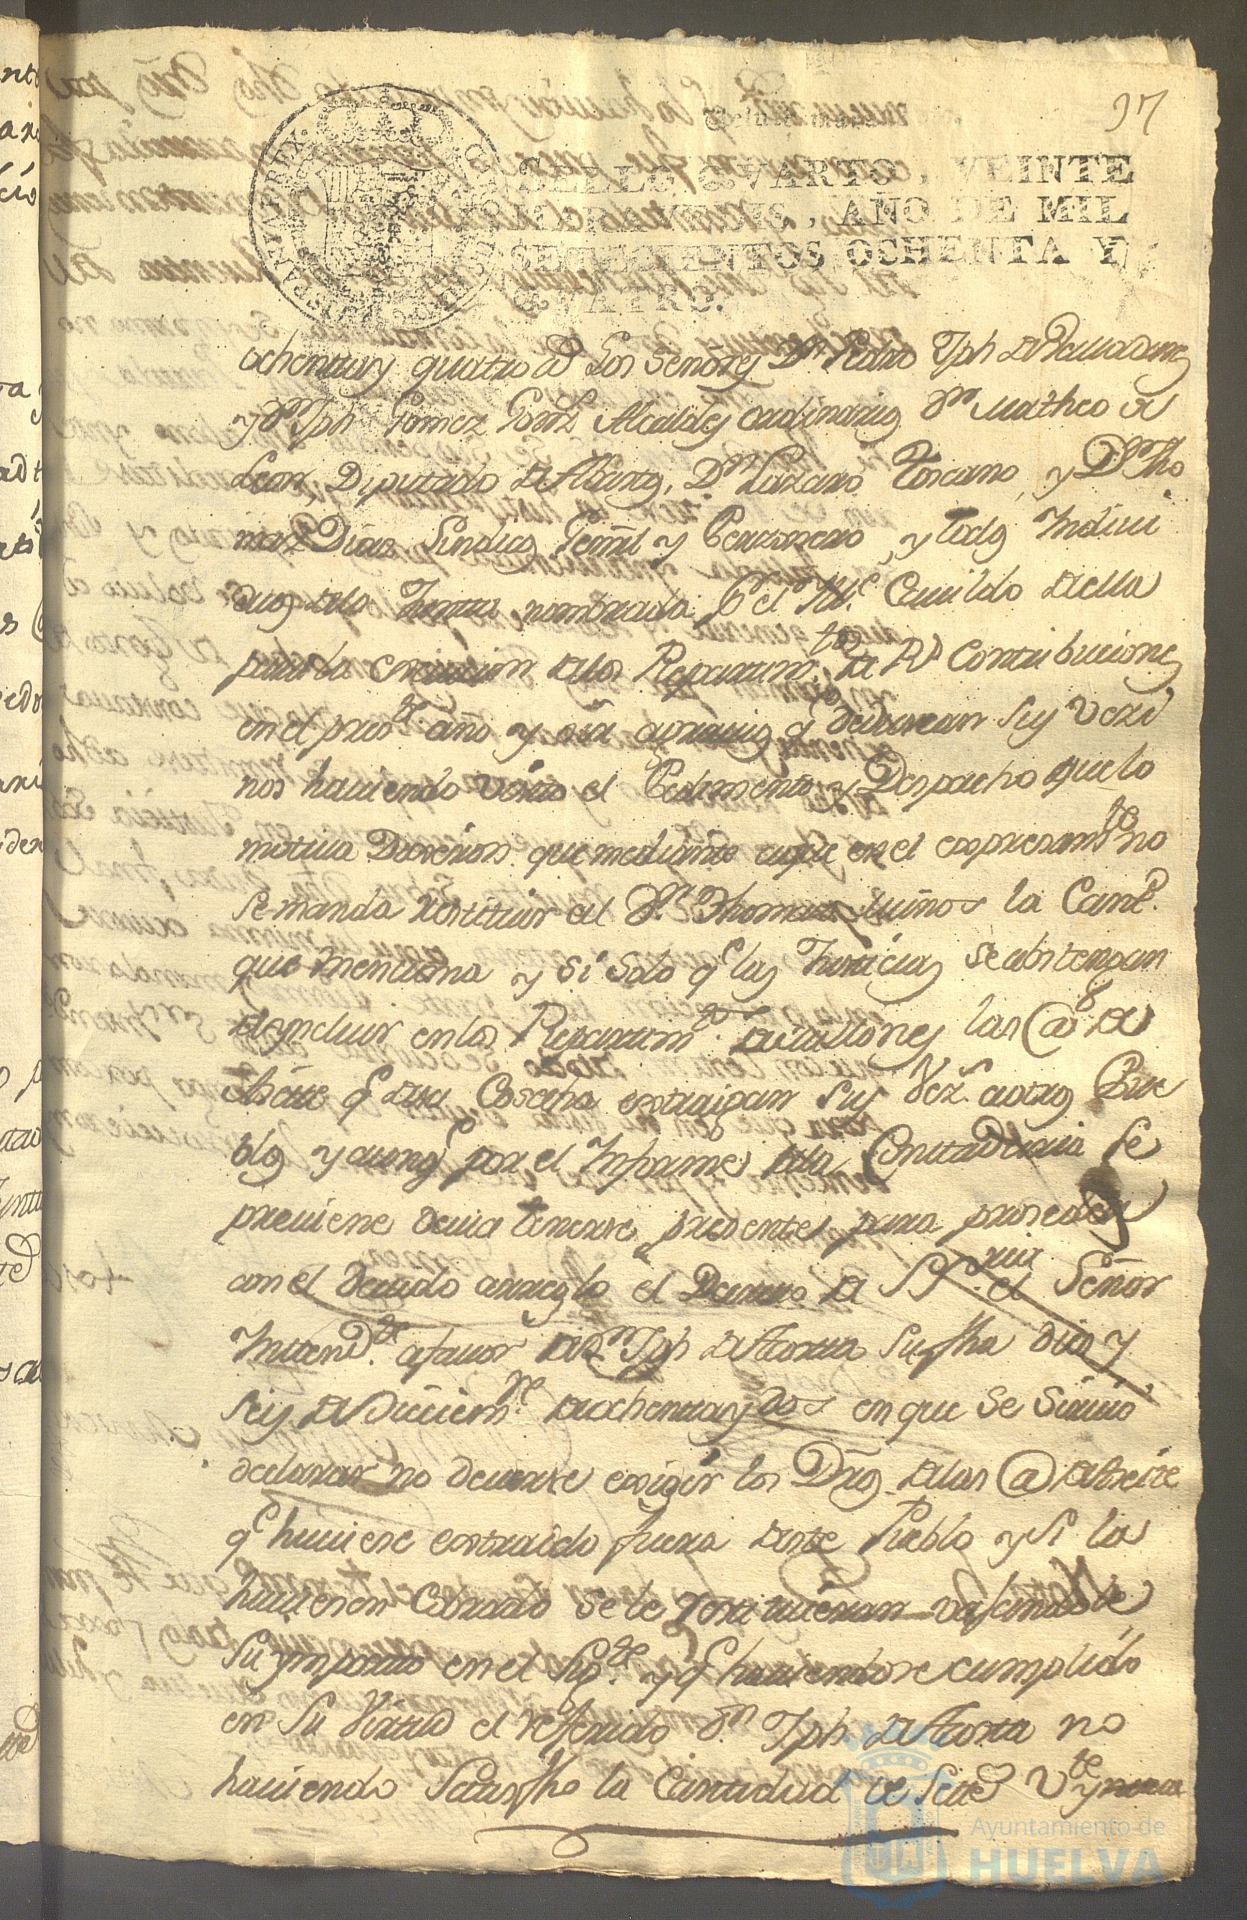 97
SELLO QVARTO, VEINTE
MARAVEDIS, AÑO DE MIL
SETECIENTOS OCHENTA Y
QVATRO.
HISPANIARUM REX
ochenta y quatro a los Señores Dn Pedro Jph
y Dn Jph Gomez Alcaldes ordinarios Dn Matheo de
Leon, Diputado de Abasto, Dn Lazaro Toscano, y Dn Tho
mas Diaz Sindico Genrl y Personero, y todos Indivi
duos de la Junta nombrada pr el Nble Cavildo della
para la de los Repartimtos de Rs Contribuciones
en el preste año y que devieran sus vezi
nos haviendo visto el Pedimento y Despacho que lo
motiva Dixeron que mediante a que en el expresamte no
se manda restituir al Dn Thomas Muños la Cantd
que menciona y si solo qe las Justicias se abstengan
de yncluir en los Repartimtos de Millones las @s de
Aseite qe de su Cosecha extraigan sus vezs a otros Pue
blos y aunqe por el Informe de la Contaduria se
previene devia tenerse presente para proseder
con el devido arreglo el Decreto de Sria el Señor
Intendte a favor de Dn Jph de Acosta su fha dies y
seis de Diciemre de ochenta y dos en que se sirvio
declarar no deverse exigir los Dros de las @ de Aseite
qe huviese extraido fuera deste Pueblo y si las
huviesen Cobrado se le
su ymporte en el sigte y qe haviendose cumplido
en su virtud el referido Dn Jph de Acosta no
haviendo la Cantidad de Sete
Ayuntamiento de
HUELVA